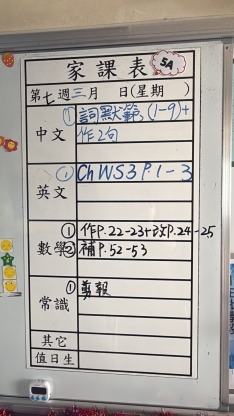 家課表
5A
第七週三月 日(星期 )
中文 ① 詞默範(1-9)+
作2句
英文 ① Ch WS3 P.1-3
數學 ① 作P.22-23+改P.24-25
② 補P.52-53
常識 ① 剪報
其它
值日生